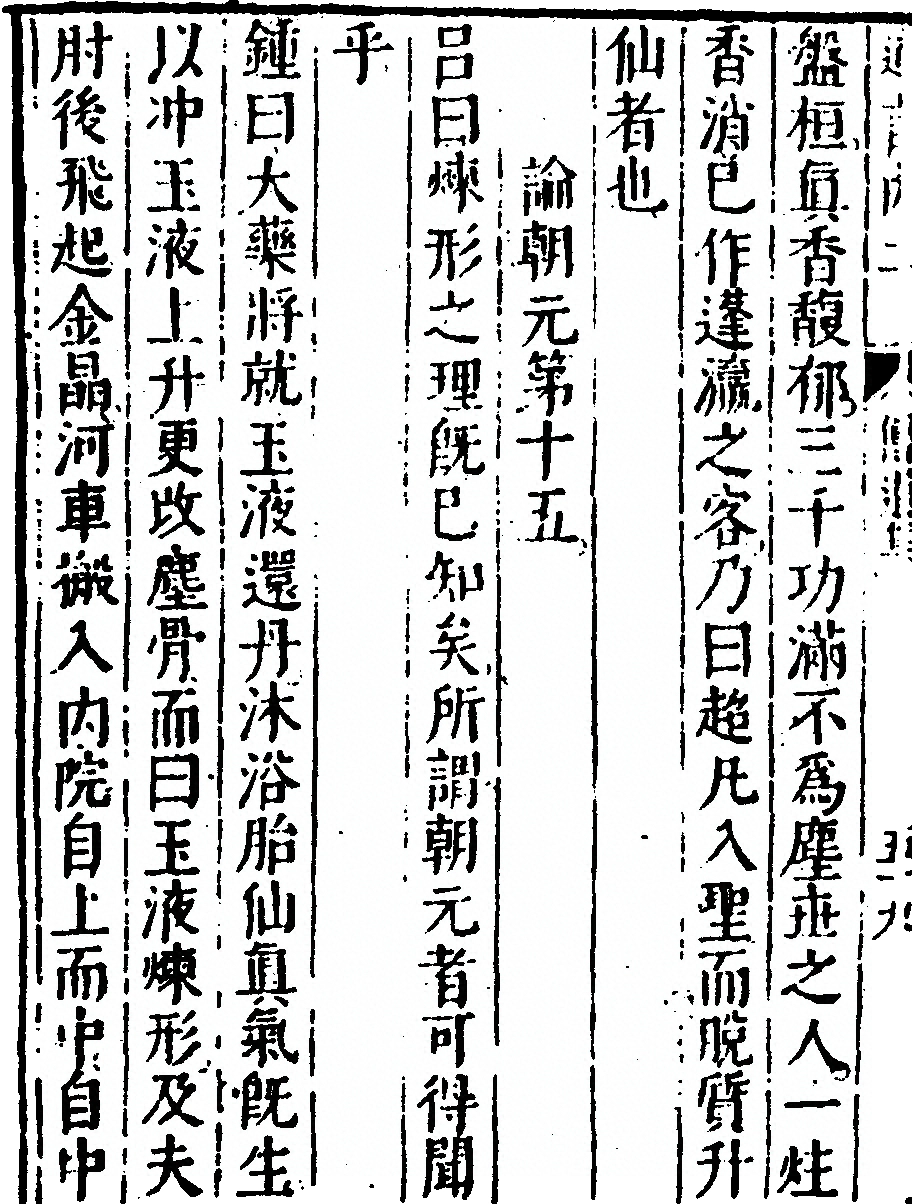 盤桓真香馥郁三千功滿不爲塵世之人一炷
香消已作蓬瀛之客乃曰超凡入聖而脫質升
仙者也
論朝元第十五
呂曰煉形之理旣已知矣所謂朝元者可得聞
乎
鍾曰大藥將就玉液還丹沐浴胎仙眞氣旣生
以冲玉液上升更改塵骨而曰玉液煉形及夫
肘後飛起金晶河車搬入内院自上而中自中